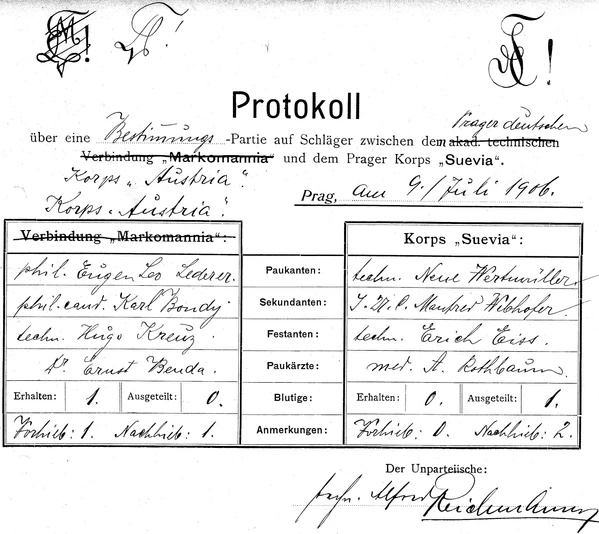 Protokoll
Prager deutschen
über eine Bestimmungs -Partie auf Schläger zwischen dem akad. technischen
Verbindung „Markomannia“ und dem Prager Korps „Suevia“.
Korps „Austria“.
Prag, am 9./Juli 1906.
Korps „Austria“.
Verbindung „Markomannia“: Korps „Suevia“:
phil. Eugen Leo Lederer. Paukanten: techn. Wertmüller.
phil. cand. Karl Bondy Sekundanten: Manfred Webhofer.
techn. Hugo Kreuz. Festanten: techn. Erich Eiss.
Dr. Ernst Benda. Paukärzte: med. A. Rothbaum.
Erhalten: 1. Ausgeteilt: 0. Blutige: Erhalten: 0. Ausgeteilt: 1.
Vorhieb: 1. Nachhieb: 1. Anmerkungen: Vorhieb: 0. Nachhieb: 2.
Der Unparteiische:
techn. Alfred Reichmann